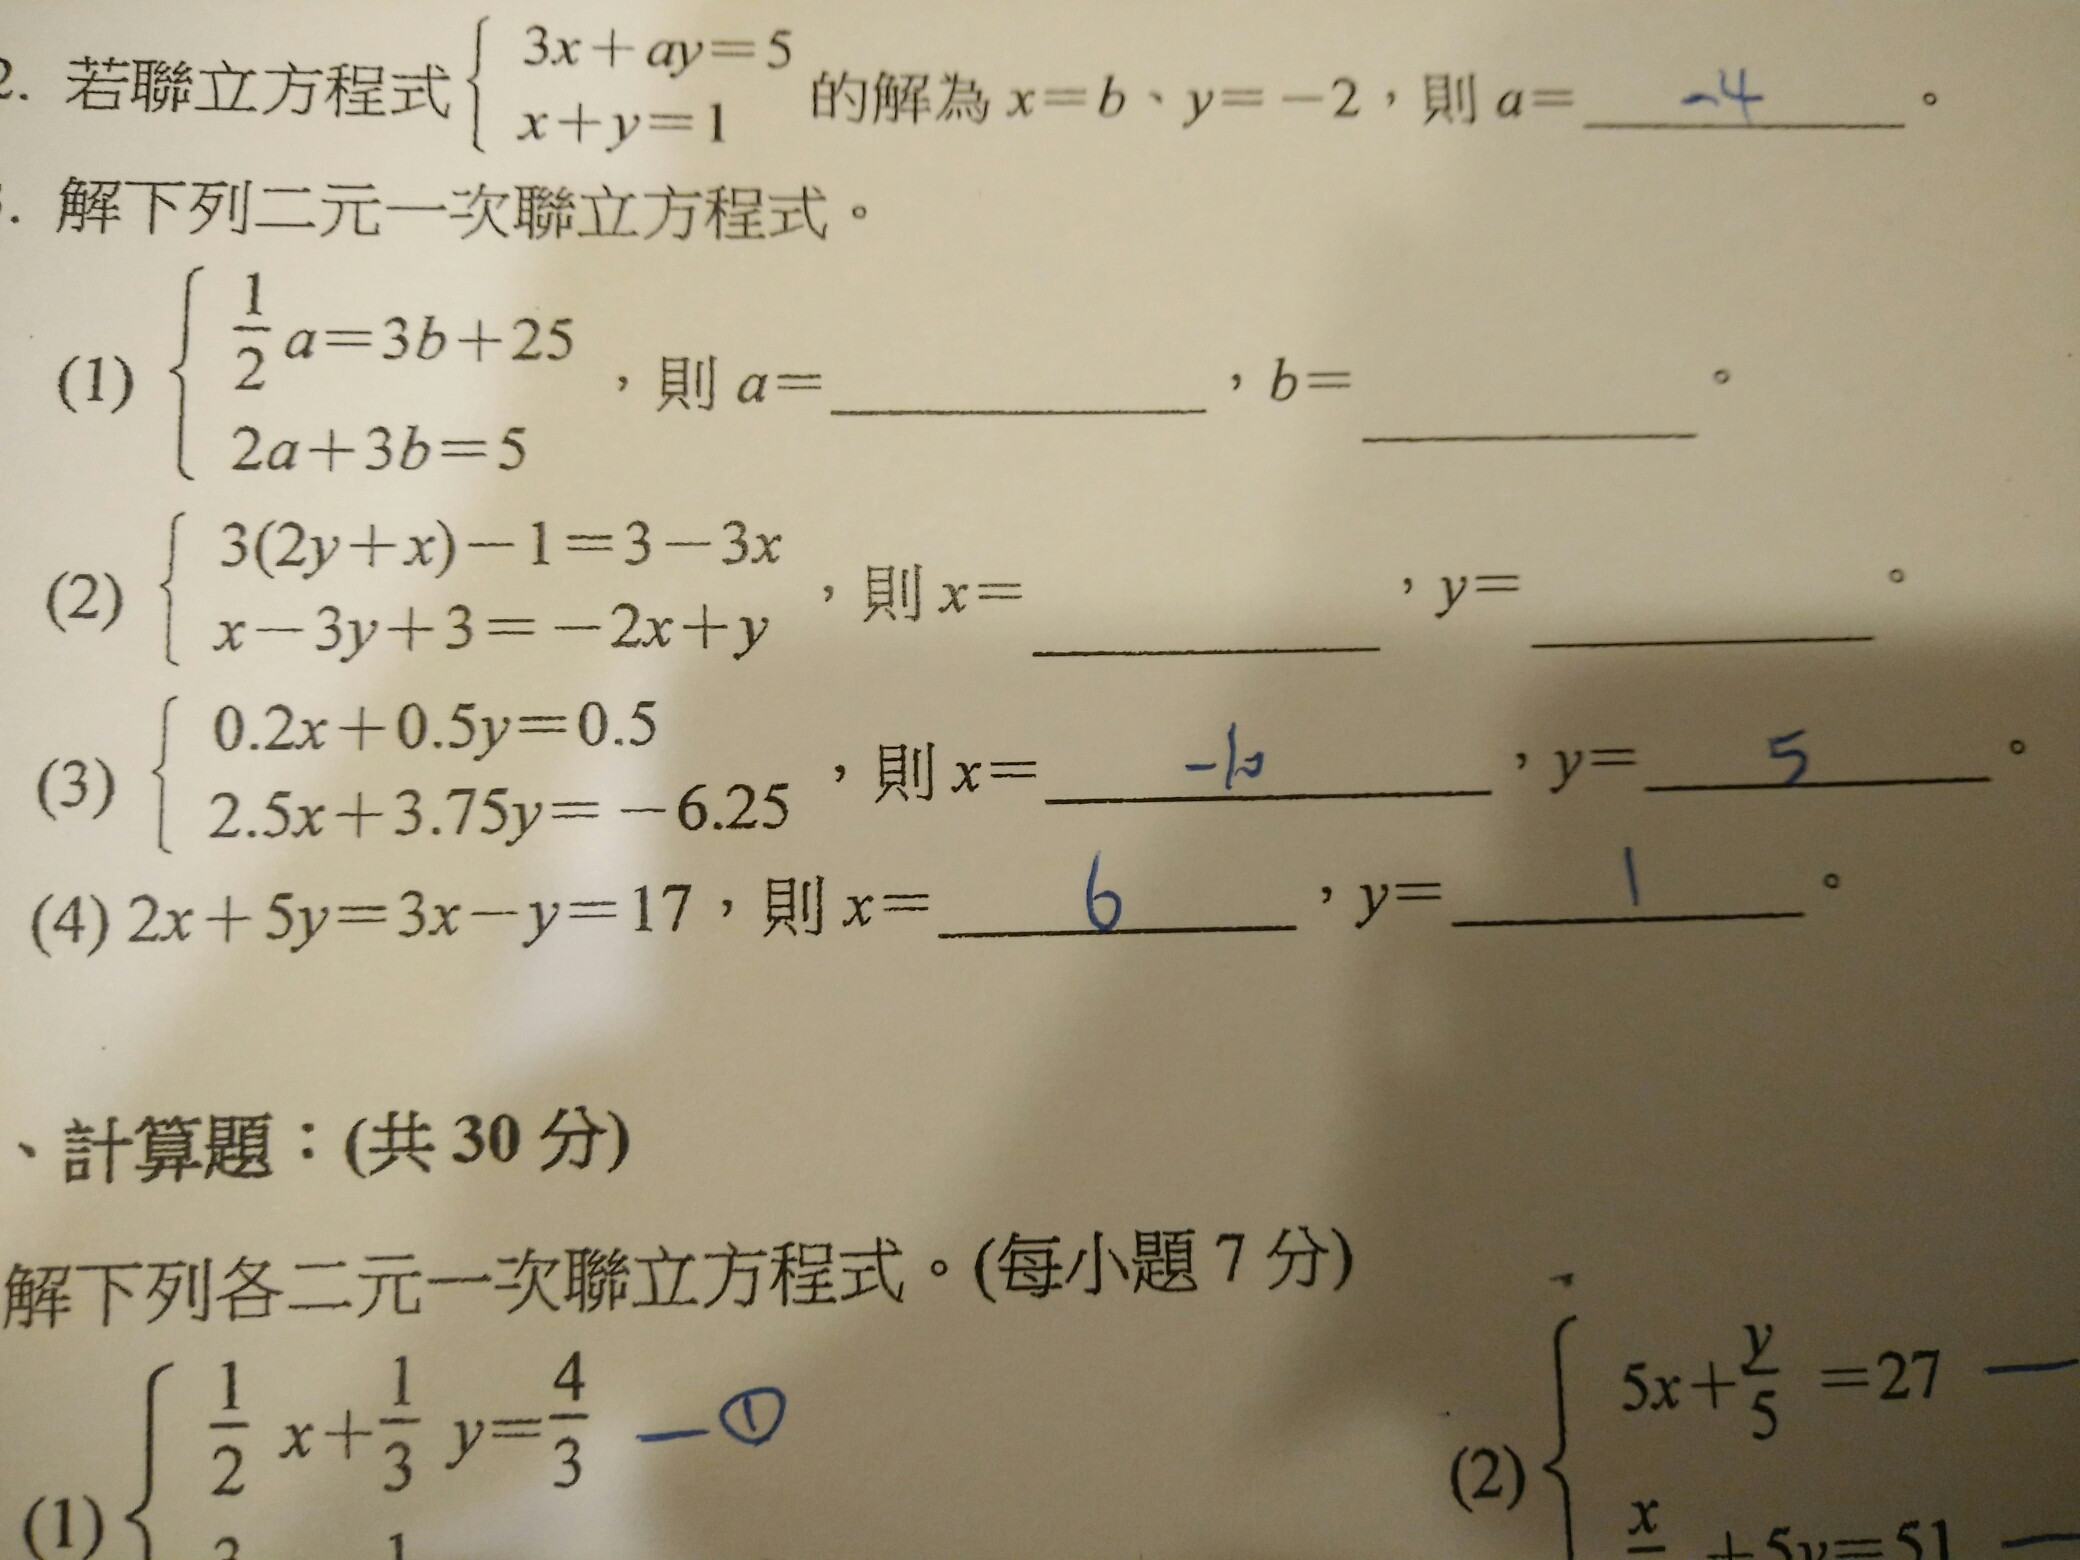 2. 若聯立方程式{3x+ay=5 x+y=1 的解為 x=b、y=-2，則 a= -4 。
. 解下列二元一次聯立方程式。
(1) {1/2 a=3b+25 2a+3b=5 ，則 a=____，b=____。
(2) {3(2y+x)-1=3-3x x-3y+3=-2x+y ，則 x=____，y=____。
(3) {0.2x+0.5y=0.5 2.5x+3.75y=-6.25 ，則 x= -10 ，y= 5 。
(4) 2x+5y=3x-y=17，則 x= 6 ，y= 1 。
、計算題：(共 30 分)
解下列各二元一次聯立方程式。(每小題 7 分)
(1) {1/2 x+1/3 y=4/3 —①
(2) {5x+y/5=27 —
x +5y=51 —